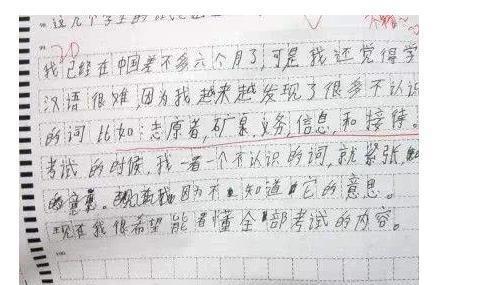 这几个学生的
20
我已经在中国差不多六个月了,可是我还觉得学
汉语很难,因为我越来越发现了很多不认识
的词比如:志原者,矿泉,义务,信息,和接待。
考试的时候,我一看一个不认识的词,就紧张,
的意思。因为不知道它的意思。
现在我很希望能看懂全部考试的内容。